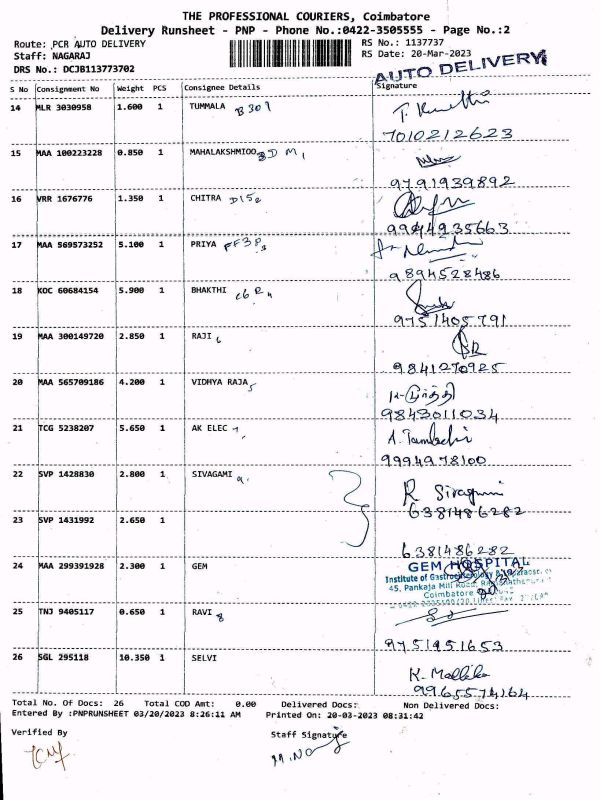 THE PROFESSIONAL COURIERS, Coimbatore
Delivery Runsheet - PNP - Phone No.:0422-3505555 - Page No.:2
Route: PCR AUTO DELIVERY RS No.: 1137737
Staff: NAGARAJ RS Date: 20-Mar-2023
DRS No.: DCJB113773702 AUTO DELIVERY
S No Consignment No Weight PCS Consignee Details Signature
14 MLR 3030958 1.600 1 TUMMALA B301
7010212623
15 MAA 100223228 0.850 1 MAHALAKSHMI
9791939892
16 VRR 1676776 1.350 1 CHITRA
9944935663
17 MAA 569573252 5.100 1 PRIYA
9894528486
18 KOC 60684154 5.900 1 BHAKTHI
9751405791
19 MAA 300149720 2.850 1 RAJI 6
9841270925
20 MAA 565709186 4.200 1 VIDHYA RAJA 5
9843011034
21 TCG 5238207 5.650 1 AK ELEC 7
9994978100
22 SVP 1428830 2.800 1 SIVAGAMI 9 R Sivagami
6381486282
23 SVP 1431992 2.650 1
6381486282
24 MAA 299391928 2.300 1 GEM GEM HOSPITAL
Institute of
45, Pankaja Mill Road,
Coimbatore
25 TNJ 9405117 0.650 1 RAVI 8
9751951653
26 SGL 295118 10.350 1 SELVI K. Mallika
9965574164
Total No. Of Docs: 26 Total COD Amt: 0.00 Delivered Docs: Non Delivered Docs:
Entered By :PNPRUNSHEET 03/20/2023 8:26:11 AM Printed On: 20-03-2023 08:31:42
Verified By Staff Signature